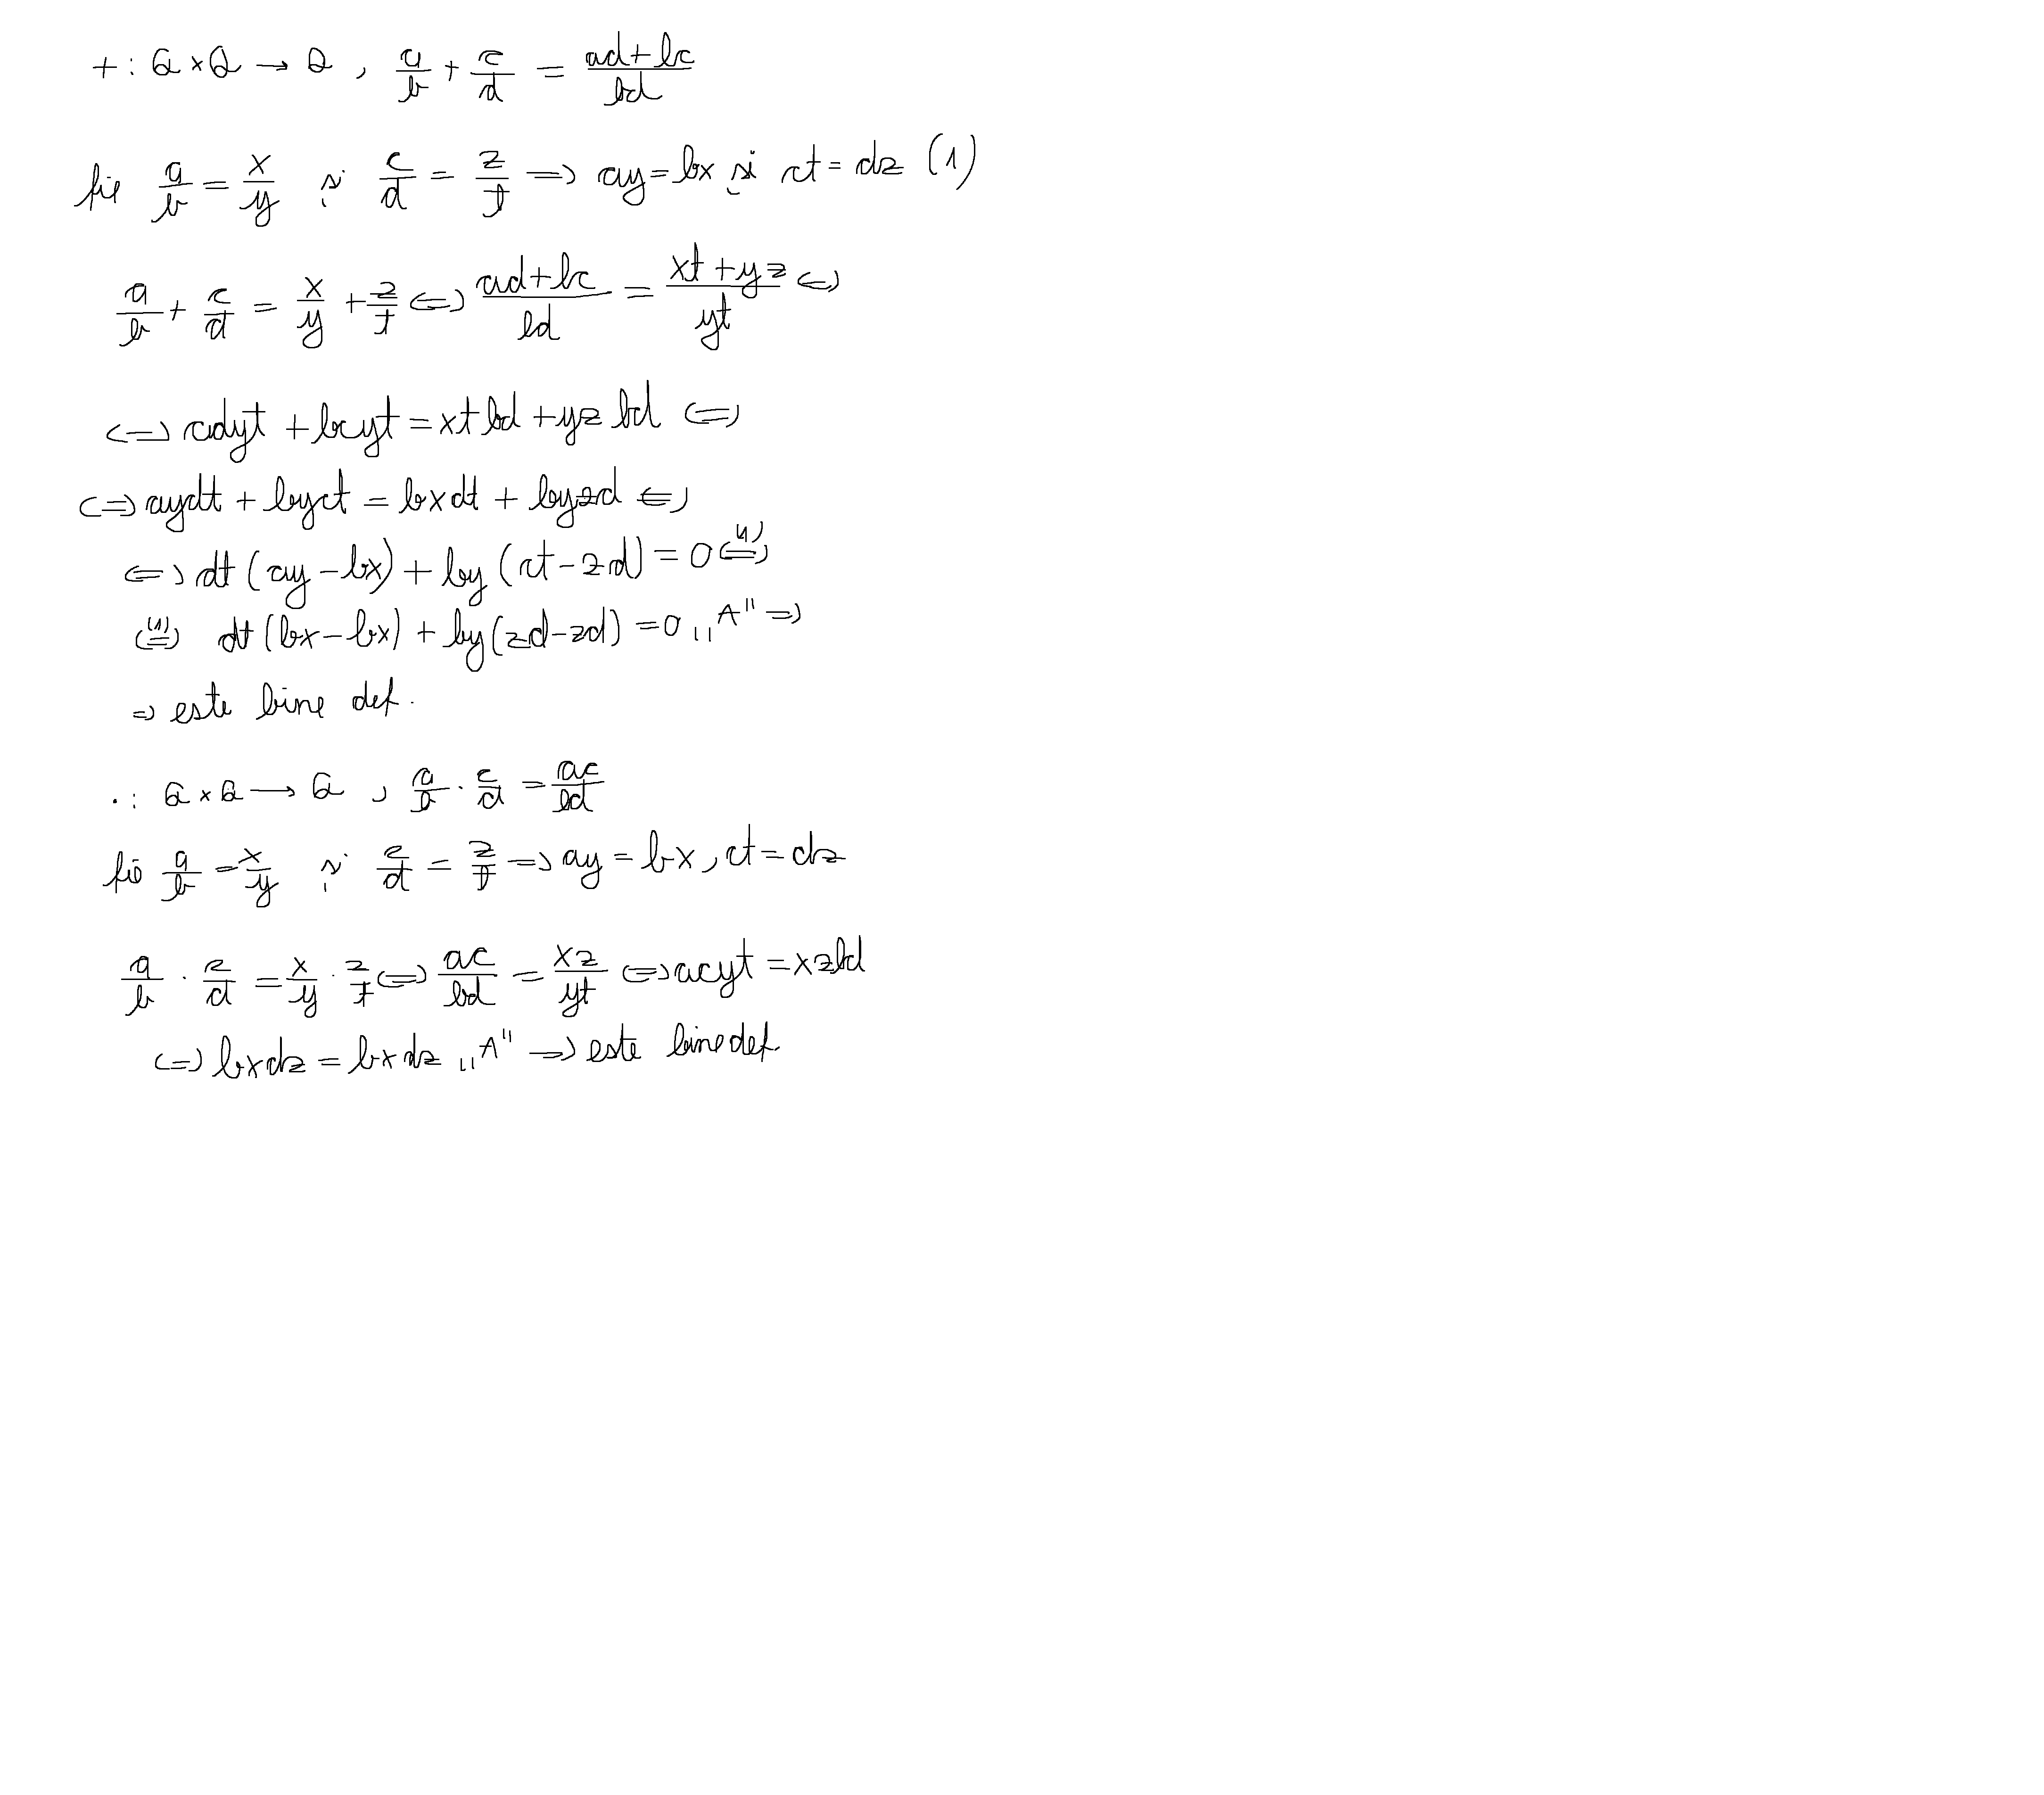 +: Q×Q → Q, a/b + c/d = (ad+bc)/bd
fie a/b = x/y și c/d = z/t => ay=bx și ct=dz (1)
a/b + c/d = x/y + z/t <=> (ad+bc)/bd = (xt+yz)/yt <=>
<=> adyt + bcyt = xtbd + yzbd <=>
<=> aydt + byct = bxdt + byzd <=>
<=> dt(ay-bx) + by(ct-zd) = 0 <=>(1)
<=>(1) dt(bx-bx) + by(zd-zd) = 0 „A" =>
=> este bine def.
·: Q×Q → Q, a/b · c/d = ac/bd
fie a/b = x/y și c/d = z/t => ay = bx, ct = dz
a/b · c/d = x/y · z/t <=> ac/bd = xz/yt <=> acyt = xzbd
<=> bxdz = bxdz „A" => este bine def.